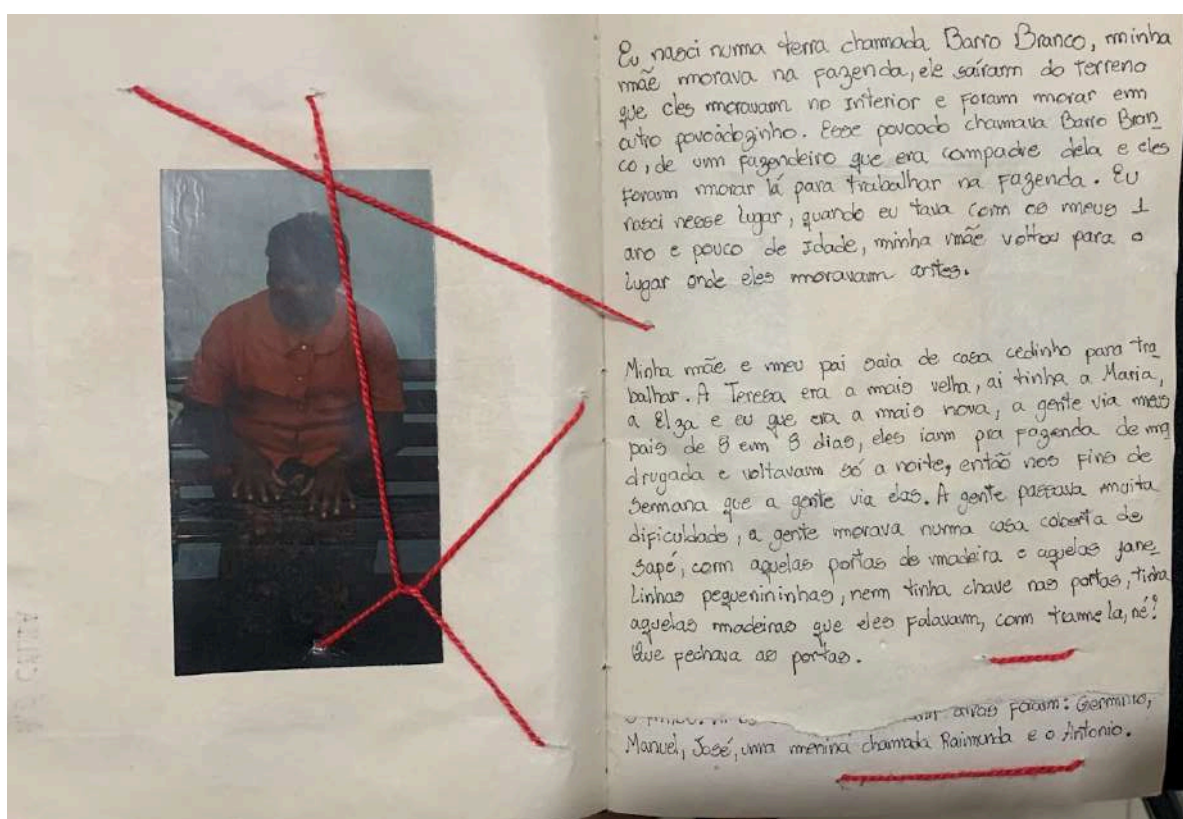 Eu nasci numa terra chamada Barro Branco, minha
mãe morava na fazenda, ele saíram do terreno
que eles moravam no interior e foram morar em
outro povoadozinho. Esse povoado chamava Barro Bran
co, de um fazendeiro que era compadre dela e eles
foram morar lá para trabalhar na fazenda. Eu
nasci nesse lugar, quando eu tava com os meus 1
ano e pouco de idade, minha mãe voltou para o
lugar onde eles moravam antes.
Minha mãe e meu pai saia de casa cedinho para tra
balhar. A Teresa era a mais velha, ai tinha a Maria,
a Elza e eu que era a mais nova, a gente via meus
pais de 8 em 8 dias, eles iam pra fazenda de ma
drugada e voltavam só a noite, então nos fins de
semana que a gente via elas. A gente passava muita
dificuldade, a gente morava numa casa coberta de
sapé, com aquelas portas de madeira e aquelas jane
linhas pequenininhas, nem tinha chave nas portas, tinha
aquelas madeiras que eles falavam, com tramela, né?
Que fechava as portas.
foram: Germinio,
Manuel, José, uma menina chamada Raimunda e o Antonio.